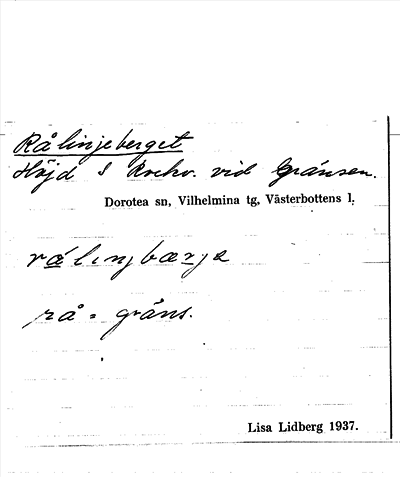 Rålinjeberget
Höjd S Rockv. vid gränsen.
Dorotea sn, Vilhelmina tg, Västerbottens l.
rålınjbærjɛ
rå = gräns.
Lisa Lidberg 1937.